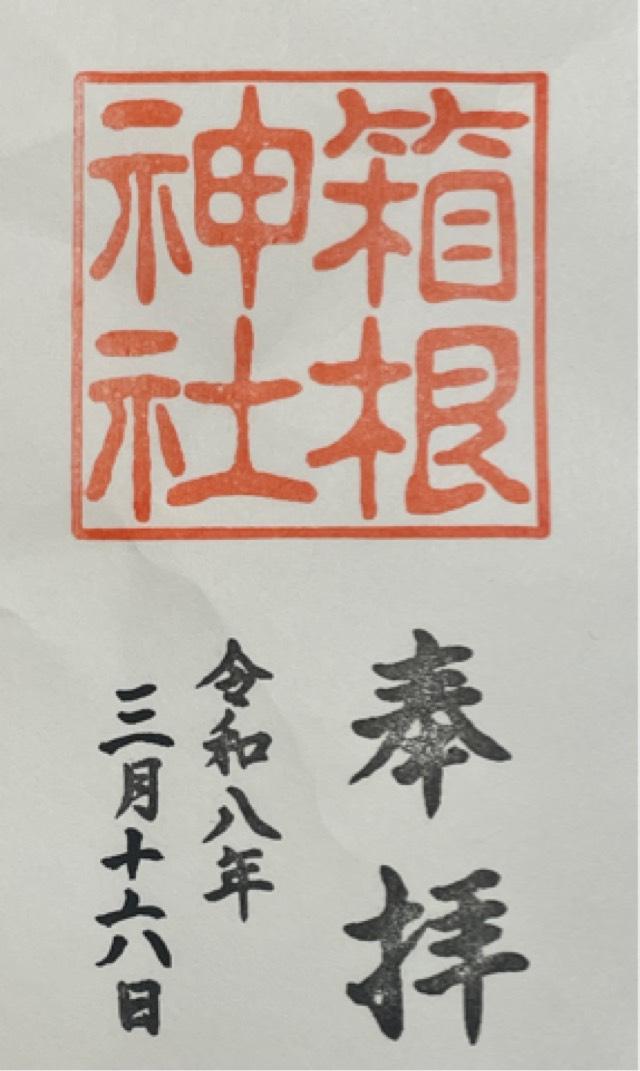 箱根
神社
奉拝
令和八年
三月十六日